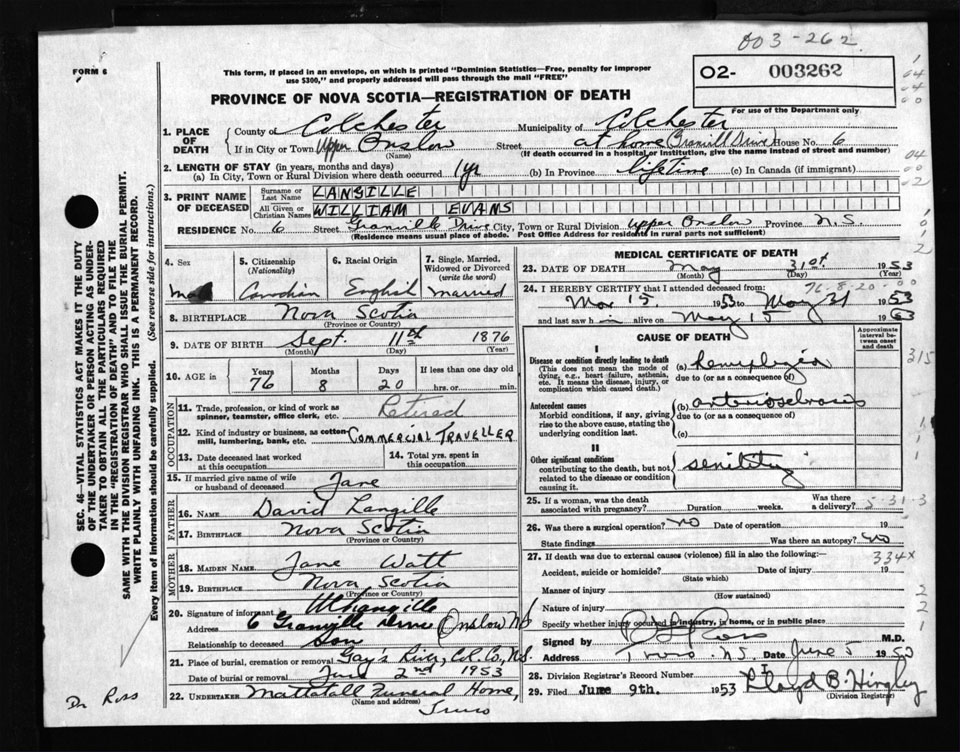 003-262
FORM 6
This form, if placed in an envelope, on which is printed "Dominion Statistics—Free, penalty for improper
use $300," and properly addressed will pass through the mail "FREE"
02- 003262
For use of the Department only
PROVINCE OF NOVA SCOTIA—REGISTRATION OF DEATH
1. PLACE OF DEATH
County of Colchester Municipality of Colchester
If in City or Town Upper Onslow Street at home (Granvill Drive) House No. 6
(Name) (If death occurred in a hospital or institution, give the name instead of street and number)
2. LENGTH OF STAY (in years, months and days)
(a) In City, Town or Rural Division where death occurred 1yr (b) In Province lifetime (c) In Canada (if immigrant)
3. PRINT NAME OF DECEASED
Surname or Last Name LANGILLE
All Given or Christian Names WILLIAM EVANS
RESIDENCE No. 6 Street Granville Drive City, Town or Rural Division Upper Onslow Province N.S.
(Residence means usual place of abode. Post Office Address for residents in rural parts not sufficient)
4. Sex
5. Citizenship (Nationality)
6. Racial Origin
7. Single, Married, Widowed or Divorced (write the word)
Male Canadian English Married
8. BIRTHPLACE Nova Scotia
(Province or Country)
9. DATE OF BIRTH Sept. 11th 1876
(Month) (Day) (Year)
10. AGE in Years Months Days If less than one day
76 8 20 hrs. or min.
OCCUPATION
11. Trade, profession, or kind of work as spinner, teamster, office clerk, etc. Retired
12. Kind of industry or business, as cotton mill, lumbering, bank, etc. COMMERCIAL TRAVELLER
13. Date deceased last worked at this occupation
14. Total yrs. spent in this occupation
15. If married give name of wife or husband of deceased Jane
FATHER
16. NAME David Langille
17. BIRTHPLACE Nova Scotia
(Province or Country)
MOTHER
18. MAIDEN NAME Jane Watt
19. BIRTHPLACE Nova Scotia
(Province or Country)
20. Signature of informant
Address 6 Granville Drive Onslow NS
Relationship to deceased Son
21. Place of burial, cremation or removal Gay's River, Col. Co., N.S.
Date of burial or removal June 2nd 1953
22. UNDERTAKER Mattatall Funeral Home,
(Name and address) Truro
MEDICAL CERTIFICATE OF DEATH
23. DATE OF DEATH May 31st 1953
(Month) (Day)
76-8-20-00
24. I HEREBY CERTIFY that I attended deceased from:
Mar 15 1953 to May 31 1953
and last saw him alive on May 15 1953
CAUSE OF DEATH
Approximate interval between onset and death
I
Disease or condition directly leading to death
(This does not mean the mode of dying, e.g., heart failure, asthma, etc. It means the disease, injury, or complication which caused death.)
(a) hemiplegia
due to (or as a consequence of)
Antecedent causes
Morbid conditions, if any, giving rise to the above cause, stating the underlying condition last.
(b) arteriosclerosis
due to (or as a consequence of)
(c)
II
Other significant conditions
contributing to the death, but not related to the disease or condition causing it.
senility
25. If a woman, was the death associated with pregnancy? Duration weeks. Was there a delivery?
5-31-3
26. Was there a surgical operation? NO Date of operation 19
State findings Was there an autopsy? NO
27. If death was due to external causes (violence) fill in also the following:—
334x
Accident, suicide or homicide? Date of injury 19
(State which)
Manner of injury
(How sustained)
Nature of injury
Specify whether injury occurred in industry, in home, or in public place
Signed by Ross M.D.
Address Truro. N.S. Date June 5 1953
28. Division Registrar's Record Number
29. Filed June 9th. 1953 Lloyd B. Hingley
(Division Registrar)
315
Dr Ross
SEC. 46—VITAL STATISTICS ACT MAKES IT THE DUTY
OF THE UNDERTAKER OR PERSON ACTING AS UNDERTAKER TO OBTAIN ALL THE PARTICULARS REQUIRED
IN THE "REGISTRATION OF DEATH" AND TO FILE THE
SAME WITH THE DIVISION REGISTRAR WHO SHALL ISSUE THE BURIAL PERMIT.
WRITE PLAINLY WITH UNFADING INK. THIS IS A PERMANENT RECORD.
Every item of information should be carefully supplied. (See reverse side for instructions.)